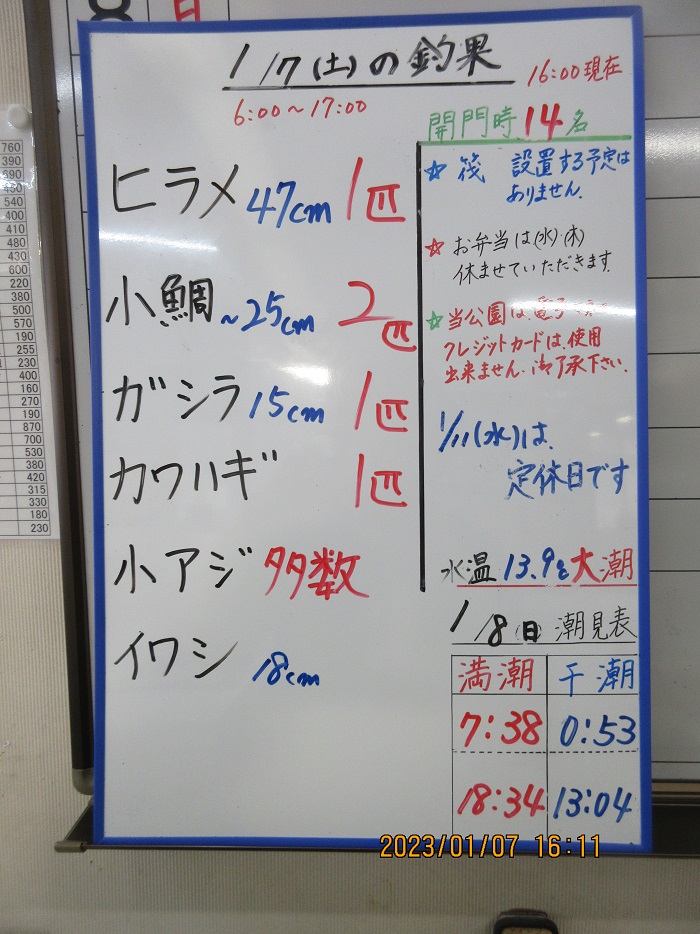 日
1/7(土)の釣果
16:00現在
6:00~17:00
開門時14名
ヒラメ 47cm 1匹
小鯛 ~25cm 2匹
ガシラ 15cm 1匹
カワハギ 1匹
小アジ 多数
イワシ 18cm
☆ 筏 設置する予定は
ありません.
☆ お弁当は(水)・(木)
休ませていただきます.
☆当公園は、電子
クレジットカードは、使用
出来ません.御了承下さい.
1/11(水)は、
定休日です
水温 13.9℃ 大潮
1/8(日)潮見表
満潮 干潮
7:38 0:53
18:34 13:04
760
390
490
450
540
400
410
480
430
600
220
380
500
570
190
255
230
400
160
270
190
870
700
530
380
420
315
330
180
230
2023/01/07 16:11